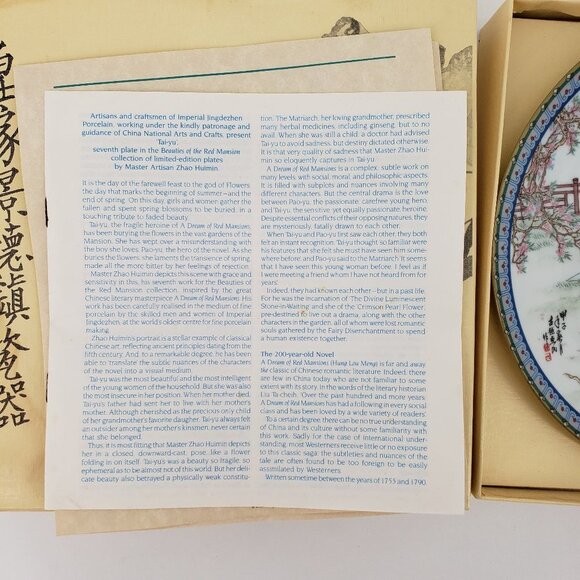 Artisans and craftsmen of Imperial Jingdezhen
Porcelain, working under the kindly patronage and
guidance of China National Arts and Crafts, present
'Tai-yu'
seventh plate in the Beauties of the Red Mansion
collection of limited-edition plates
by Master Artisan Zhao Huimin.
It is the day of the farewell feast to the god of Flowers,
the day that marks the beginning of summer—and the
end of spring. On this day, girls and women gather the
fallen and spent spring blossoms to be buried, in a
touching tribute to faded beauty.
Tai-yu, the fragile heroine of A Dream of Red Mansions,
has been burying the flowers in the vast gardens of the
Mansion. She has wept over a misunderstanding with
the boy she loves, Pao-yu, the hero of the novel. As she
buries the flowers, she laments the transience of spring,
made all the more bitter by her feelings of rejection.
Master Zhao Huimin depicts this scene with grace and
sensitivity in this, his seventh work for the Beauties of
the Red Mansion collection, inspired by the great
Chinese literary masterpiece A Dream of Red Mansions. His
work has been carefully realised in the medium of fine
porcelain by the skilled men and women of Imperial
Jingdezhen, at the world's oldest centre for fine porcelain
making.
Zhao Huimin's portrait is a stellar example of classical
Chinese art, reflecting ancient principles dating from the
fifth century. And, to a remarkable degree, he has been
able to translate the subtle nuances of the characters
of the novel into a visual medium.
Tai-yu was the most beautiful and the most intelligent
of the young women of the household. But she was also
the most insecure in her position. When her mother died,
Tai-yu's father had sent her to live with her mother's
mother. Although cherished as the precious only child of
her grandmother's favorite daughter, Tai-yu always felt
an outsider among her mother's kinsmen, never certain
that she belonged.
Thus, it is most fitting that Master Zhao Huimin depicts
her in a closed, downward-cast, pose, like a flower
folding in on itself. Tai-yu's was a beauty so fragile, so
ephemeral as to be almost not of this world. But her deli-
cate beauty also betrayed a physically weak constitu-
tion. The Matriarch, her loving grandmother, prescribed
many herbal medicines, including ginseng, but to no
avail. When she was still a child, a doctor had advised
Tai-yu to avoid sadness, but destiny dictated otherwise.
It is that very quality of sadness that Master Zhao Hui-
min so eloquently captures in Tai-yu.
A Dream of Red Mansions is a complex, subtle work on
many levels, with social, moral and philosophic aspects.
It is filled with subplots and nuances involving many
different characters. But the central drama is the love
between Pao-yu, the passionate, carefree young hero,
and Tai-yu, the sensitive, yet equally passionate, heroine.
Despite essential conflicts of their opposing natures, they
are mysteriously, fatally drawn to each other.
When Tai-yu and Pao-yu first saw each other, they both
felt an instant recognition. Tai-yu thought so familiar were
his features that she felt she must have seen him some-
where before, and Pao-yu said to the Matriarch 'It seems
that I have seen this young woman before. I feel as if
I were meeting a friend whom I have not heard from for
years'.
Indeed, they had known each other—but in a past life.
For he was the incarnation of 'The Divine Luminescent
Stone-in-Waiting', and she of the Crimson Pearl Flower,
pre-destined to live out a drama, along with the other
characters in the garden, all of whom were lost romantic
souls gathered by the Fairy Disenchantment to spend
a human existence together.
The 200-year-old Novel
A Dream of Red Mansions (Hung Lou Meng) is far and away
the classic of Chinese romantic literature. Indeed, there
are few in China today who are not familiar to some
extent with its story. In the words of the literary historian
Liu Ta-chieh, 'Over the past hundred and more years,
A Dream of Red Mansions has had a following in every social
class and has been loved by a wide variety of readers'.
To a certain degree there can be no true understanding
of China and its culture without some familiarity with
this work. Sadly for the case of international under-
standing, most Westerners receive little or no exposure
to this classic saga; the subtleties and nuances of the
tale are often found to be too foreign to be easily
assimilated by Westerners.
Written sometime between the years of 1755 and 1790,
家景德鎮瓷器